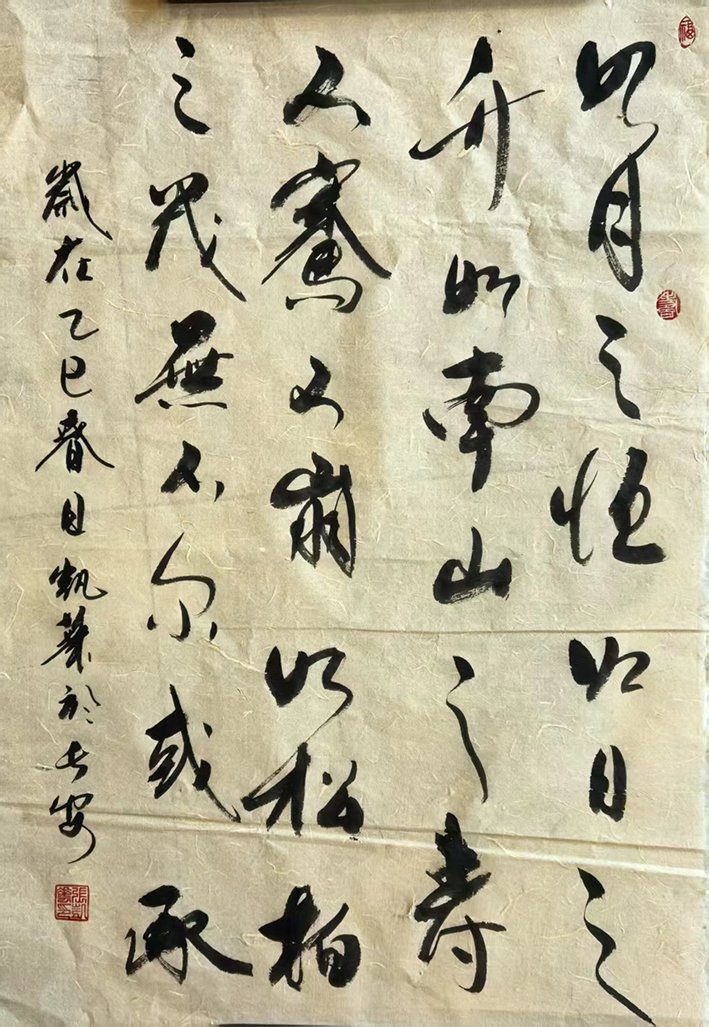 如月之恒如日之
升如南山之寿
不騫不崩如松柏
之茂無不尔或承
歲在乙巳春日凱於长安
福